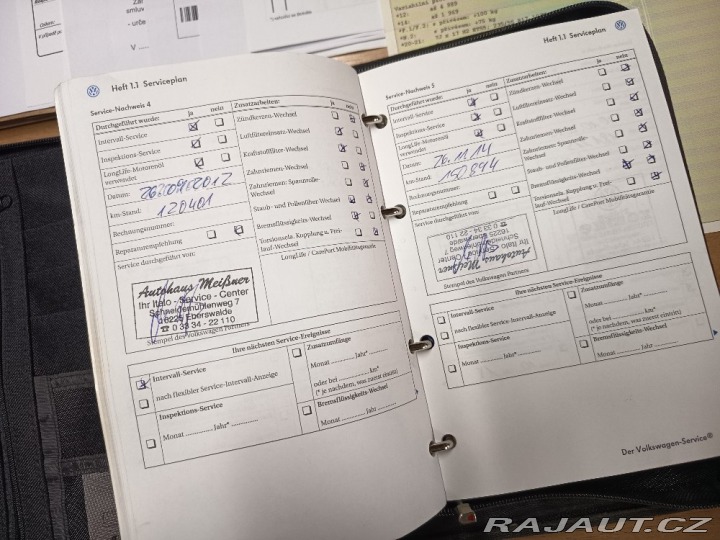 Variabilní
*12:
*14: až 1 969
+100 kg
+75 kg
zař.
smluv
- urče
V
Heft 1.1 Serviceplan
Service-Nachweis 4
Durchgeführt wurde: Ja nein Zusatzarbeiten: Ja nein
Intervall-Service Zündkerzen-Wechsel
Inspektions-Service Luftfiltereinsatz-Wechsel
LongLife-Motorenöl Kraftstofffilter-Wechsel
verwendet Zahnriemen-Wechsel
Datum: 26.09.2012 Zahnriemen: Spannrolle-
Wechsel
km-Stand: 120401 Staub- und Pollenfilter-Wechsel
Rechnungsnummer: Bremsflüssigkeits-Wechsel
Reparaturempfehlung Torsionsela. Kupplung u. Frei-
lauf-Wechsel
Service durchgeführt von: LongLife / CarePort Mobilitätsgarantie
Autohaus Meißner
Ihr Italo - Service - Center
Schneidemühlenweg 7
16225 Eberswalde
☎ 0 33 34 - 22 110
Stempel des Volkswagen Partners
Ihre nächsten Service-Ereignisse
Intervall-Service Zusatzumfänge
nach flexibler Service-Intervall-Anzeige Monat ............ Jahr*............
Inspektions-Service oder bei ............ km*
(* je nachdem, was zuerst eintritt)
Monat ............ Jahr*............ Bremsflüssigkeits-Wechsel
Monat ............ Jahr............
Heft 1.1 Serviceplan
Service-Nachweis 5
Durchgeführt wurde: Ja nein Zusatzarbeiten: Ja nein
Intervall-Service Zündkerzen-Wechsel
Inspektions-Service Luftfiltereinsatz-Wechsel
LongLife-Motorenöl Kraftstofffilter-Wechsel
verwendet Zahnriemen-Wechsel
Datum: 26.11.14 Zahnriemen: Spannrolle-
Wechsel
km-Stand: 150844 Staub- und Pollenfilter-Wechsel
Rechnungsnummer: Bremsflüssigkeits-Wechsel
Reparaturempfehlung Torsionsela. Kupplung u. Frei-
lauf-Wechsel
Service durchgeführt von: LongLife / CarePort Mobilitätsgarantie
Autohaus Meißner
Ihr Italo - Service - Center
Schneidemühlenweg 7
16225 Eberswalde
☎ 0 33 34 - 22 110
Stempel des Volkswagen Partners
Ihre nächsten Service-Ereignisse
Intervall-Service Zusatzumfänge
nach flexibler Service-Intervall-Anzeige Monat ............ Jahr*............
Inspektions-Service oder bei ............ km*
(* je nachdem, was zuerst eintritt)
Monat ............ Jahr*............ Bremsflüssigkeits-Wechsel
Monat ............ Jahr............
Der Volkswagen-Service®
RAJAUT.CZ